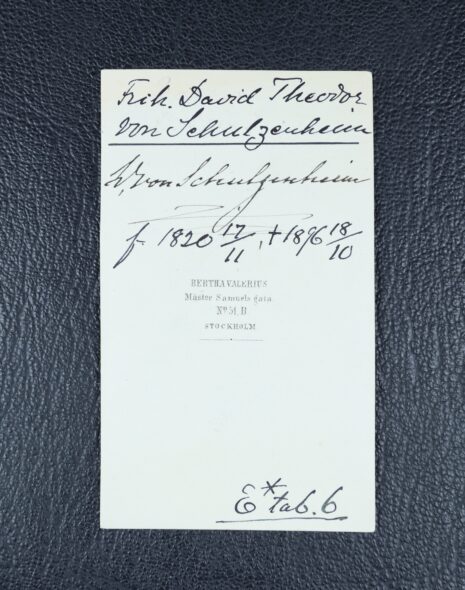 Frih. David Theodor
von Schulzenheim
D. von Schulzenheim
f. 1820 17/11, † 1896 18/10
BERTHA VALERIUS
Mäster Samuels gata.
Nº 51, B.
STOCKHOLM
E* tab. 6